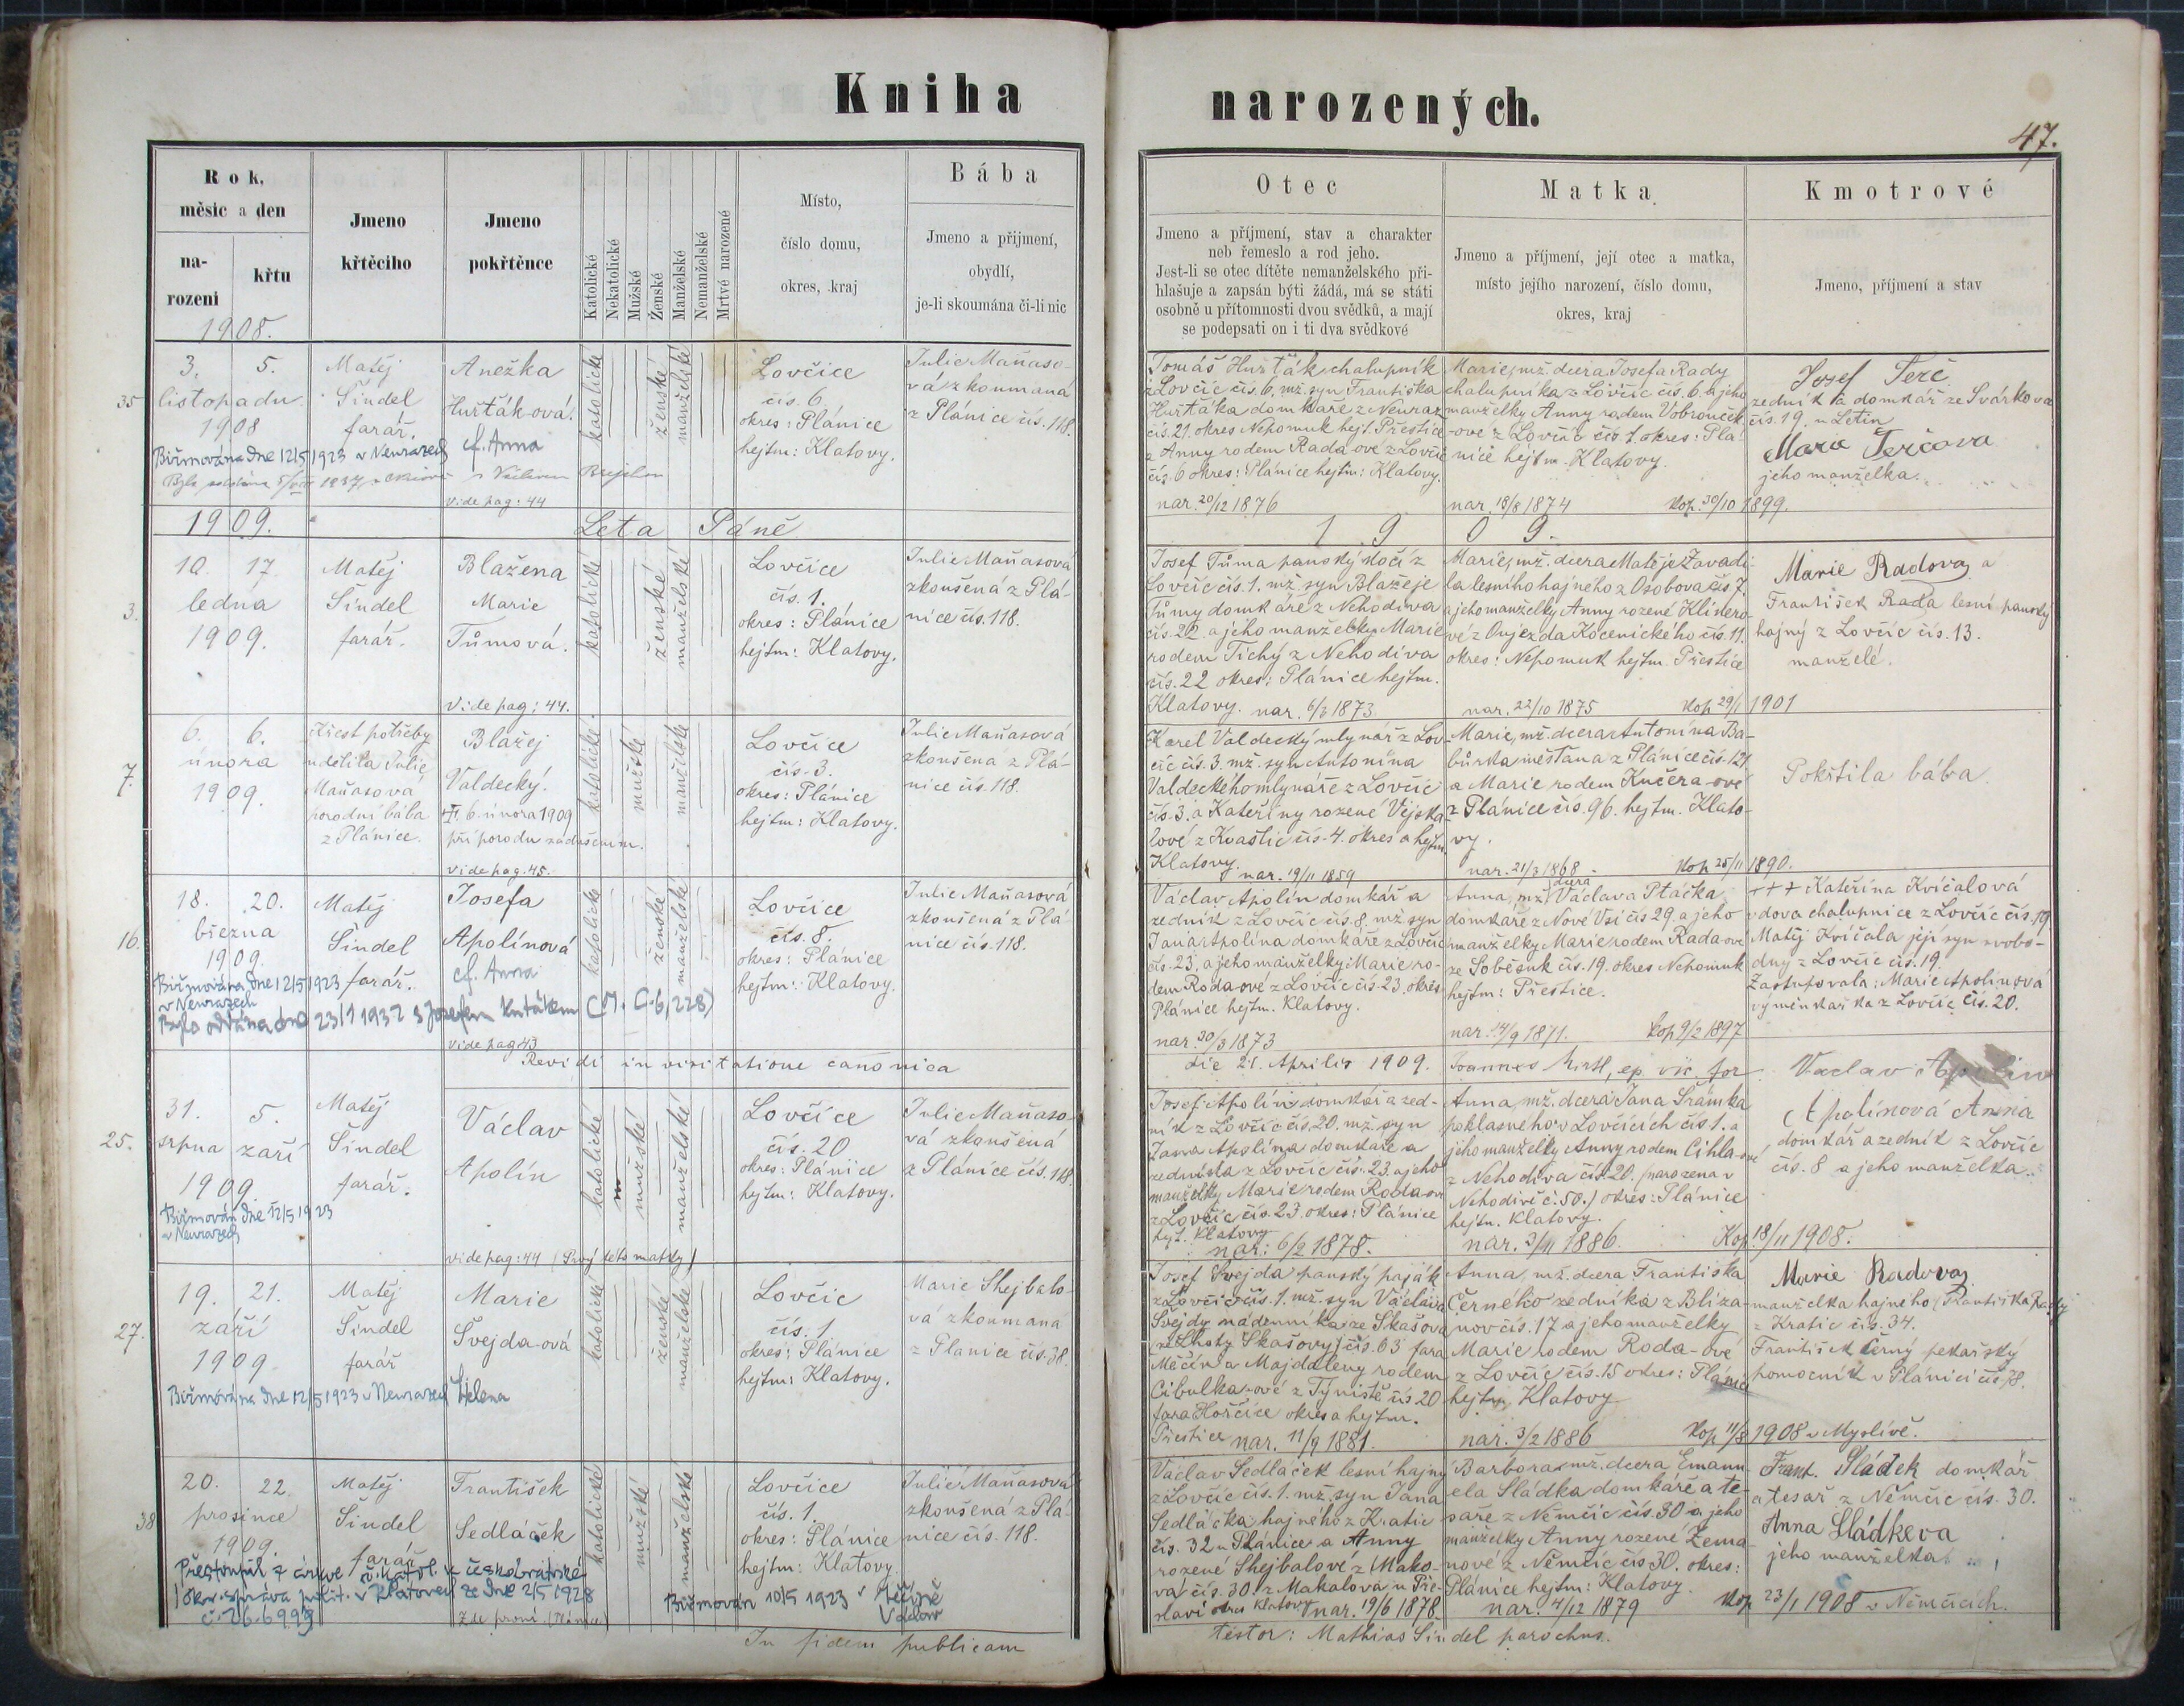 Kniha
narozených.
47.
Rok,
měsic a den
na-
rozeni
křtu
Jmeno
křtěciho
Jmeno
pokřtěnce
Katolické
Nekatolické
Mužské
Ženské
Manželské
Nemanželské
Mrtvé narozené
Místo,
číslo domu,
okres, kraj
Bába
Jmeno a přijmení,
obydlí,
je-li skoumána či-li nic
Otec
Jmeno a příjmení, stav a charakter
neb řemeslo a rod jeho.
Jest-li se otec dítěte nemanželského při-
hlašuje a zapsán býti žádá, má se státi
osobně u přítomnosti dvou svědků, a mají
se podepsati on i ti dva svědkové
Matka
Jmeno a příjmení, její otec a matka,
místo jejího narození, číslo domu,
okres, kraj
Kmotrové
Jmeno, příjmení a stav
1908.
35
3. 5.
listopadu
1908
Matěj
Šindel
farář.
Anežka
Huřťák-ová.
cf. Anna
Biřmována dne 12/5 1923 v Neurazech
vide pag: 44
katolické
ženské
manželské
Lovčice
čís. 6
okres: Plánice
hejtm: Klatovy.
Julie Maňaso-
vá zkoumaná
z Plánice čís. 118.
Tomáš Huřťák chalupník
z Lovčic čís. 6. mž. syn Františka
Huřťáka domkáře z Neuraz
čís. 21. okres Nepomuk hejt. Přestice
a Anny rodem Rada-ové z Lovčic
čís. 6 okres: Plánice hejtm: Klatovy.
nar. 20/12 1876
Marie, mž. dcera Josefa Rady
chalupníka z Lovčic čís. 6. a jeho
manželky Anny rodem Vobrouček
-ové z Lovčic čís. 7. okres: Plá-
nice hejtm. Klatovy.
nar. 18/8 1874 Kop. 30/10 1899.
Josef Terč
zedník a domkář ze Svárkova
čís. 19. u Letin
Mara Terčova
jeho manželka.
1909. Leta Páně 1909.
3.
10. 17
ledna
1909.
Matěj
Šindel
farář.
Blažena
Marie
Tůmová.
vide pag: 44.
katolické
ženské
manželské
Lovčice
čís. 1.
okres: Plánice
hejtm: Klatovy.
Julie Maňasová
zkoušená z Plá-
nice čís. 118.
Josef Tůma panský kočí z
Lovčic čís. 1. mž. syn Blažeje
Tůmy domkáře z Nehodiva
a jeho manželky Marie
rodem Tichý z Nehodiva
čís. 22 okres: Plánice hejtm.
Klatovy. nar. 6/3 1873.
Marie, mž. dcera Matěje Zavadi-
la lesního hajného z Osobova čís 7.
a jeho manželky Anny rozené Klidero-
vé z Oujezda Kocenického čís. 11.
okres: Nepomuk hejtm. Přestice
nar. 22/10 1875 Kop 29/1 1901
Marie Radova a
František Rada lesní panský
hajný z Lovčic čís. 13.
manželé.
7.
6. 6.
února
1909.
Křest potřeby
udělila Julie
Maňasová
porodní bába
z Plánice.
Blažej
Valdecký.
6. února 1909
při porodu zadušením.
vide pag. 45.
katolické
mužské
manželské
Lovčice
čís. 3.
okres: Plánice
hejtm: Klatovy.
Julie Maňasová
zkoušená z Plá-
nice čís. 118.
Karel Valdecký mlynář z Lov-
čic čís. 3. mž. syn Antonína
Valdeckého mlynáře z Lovčic
čís. 3. a Kateřiny rozené Vejska-
lové z Kvaštic čís. 4. okres a hejtm.
Klatovy. nar. 19/11 1859
Marie, mž. dcera Antonína Ba-
bůrka měšťana z Plánice čís. 121
a Marie rodem Kučera-ové
z Plánice čís. 96. hejtm. Klato-
vy.
nar. 21/3 1868. Kop 25/11 1890.
Pokřtila bába.
16.
18. 20.
března
1909.
Matěj
Šindel
farář.
Josefa
Apolínová
cf. Anna
Biřmována dne 12/5 1923
v Neurazech
Byla oddána dne 23/1 1932 s Josefem Kuťákem
vide pag 43
katolické
ženské
manželské
Lovčice
čís. 8.
okres: Plánice
hejtm: Klatovy.
Julie Maňasová
zkoušená z Plá-
nice čís. 118.
Václav Apolín domkář a
zedník z Lovčic čís. 8. mž. syn
Jana Apolína domkáře z Lovčic
čís. 23. a jeho manželky Marie ro-
dem Rada-ové z Lovčic čís. 23. okres
Plánice hejtm. Klatovy.
nar. 30/3 1873
Anna, mž. dcera Václava Ptáčka
domkáře z Nové Vsi čís 29. a jeho
manželky Marie rodem Rada-ové
ze Soběsuk čís. 19. okres Nepomuk
hejtm: Přestice.
nar. 14/9 1871. Kop 9/2 1897
+++ Kateřina Kvíčalová
vdova chalupnice z Lovčic čís. 19
Matěj Kvíčala její syn svobo-
dný z Lovčic čís. 19.
Zastupovala: Marie Apolínová
výměnkářka z Lovčic čís. 20.
Revidi in visitatione canonica
die 21. Aprilis 1909. Joannes
25.
31. 5.
srpna září
1909
Matěj
Šindel
farář.
Václav
Apolín
Biřmován dne 12/5 1923
v Neurazech
vide pag: 44 (Prvý této matky)
katolické
mužské
manželské
Lovčice
čís. 20
okres: Plánice
hejtm: Klatovy.
Julie Maňaso-
vá zkoušená
z Plánice čís. 118.
Josef Apolín domkář a zed-
ník z Lovčic čís. 20. mž. syn
Jana Apolína domkáře a
zedníka z Lovčic čís. 23. a jeho
manželky Marie rodem Rada-ové
z Lovčic čís. 23. okres: Plánice
hejt. Klatovy
nar: 6/2 1878.
Anna, mž. dcera Jana Šrámka
poklasného v Lovčicích čís 1. a
jeho manželky Anny rodem Cihla-ové
z Nehodiva čís. 20. (narozena v
Nehodivě č. 50.) okres: Plánice
hejtm. Klatovy.
nar. 3/11 1886. Kop 18/11 1908.
Vaclav Apolin
Apolínová Anna
domkář a zedník z Lovčic
čís. 8 a jeho manželka.
27.
19. 21.
září
1909
Matěj
Šindel
farář
Marie
Švejda-ová
Helena
Biřmována dne 12/5 1923 v Neurazech
katolické
ženské
manželské
Lovčic
čís. 1
okres: Plánice
hejtm: Klatovy.
Marie Shejbalo-
vá zkoumana
z Planice čís. 38.
Josef Švejda panský paják
z Lovčic čís. 1. mž. syn Václava
Švejdy nádenníka ze Skašova
čís. 63 fara
Měčín a Majdaleny rodem
Cibulka-ové z Týniště čís 20
fara Horčice okres a hejtm.
Přestice nar. 11/9 1881.
Anna, mž. dcera Františka
Černého zedníka z Bliza-
nov čís. 17 a jeho manželky
Marie rodem Roda-ové
z Lovčic čís. 15 okres: Plánice
hejtm. Klatovy
nar. 3/2 1886 Kop 11/8 1908 v Myslívě.
Marie Radova
manželka hajného (Františka Rady
z Kratic čís. 34.
František Černý pekařský
pomocník v Plánici čís 78.
38
20. 22.
prosince
1909.
Matěj
Šindel
farář
František
Sedláček
Přestoupil z církve č. katol. k českobratrské
v Klatovech ze dne 2/5 1928
katolické
mužské
manželské
Lovčice
čís. 1.
okres: Plánice
hejtm: Klatovy
Biřmován 10/5 1923 v Měčíně
Václav
Julie Maňasová
zkoušená z Plá-
nice čís. 118.
Václav Sedláček lesní hajný
z Lovčic čís. 1. mž. syn Jana
Sedláčka hajného z Kratic
čís. 32 u Plánice a Anny
rozené Shejbalové z Mako-
va čís. 30. z Makalova u Pře-
slavi okres Klatovy nar. 19/6 1878
Barbora, mž. dcera Emanu-
ela Sládka domkáře a te-
saře z Němčic čís. 30 a jeho
manželky Anny rozené Zema-
nové z Němčic čís 30. okres:
Plánice hejtm: Klatovy.
nar. 4/12 1879 Kop 23/1 1908 v Němčicích.
Frant. Sládek domkář
a tesař z Němčic čís. 30.
Anna Sládkeva
jeho manželka.
In fidem publicam
testor: Mathias Šindel parochus.